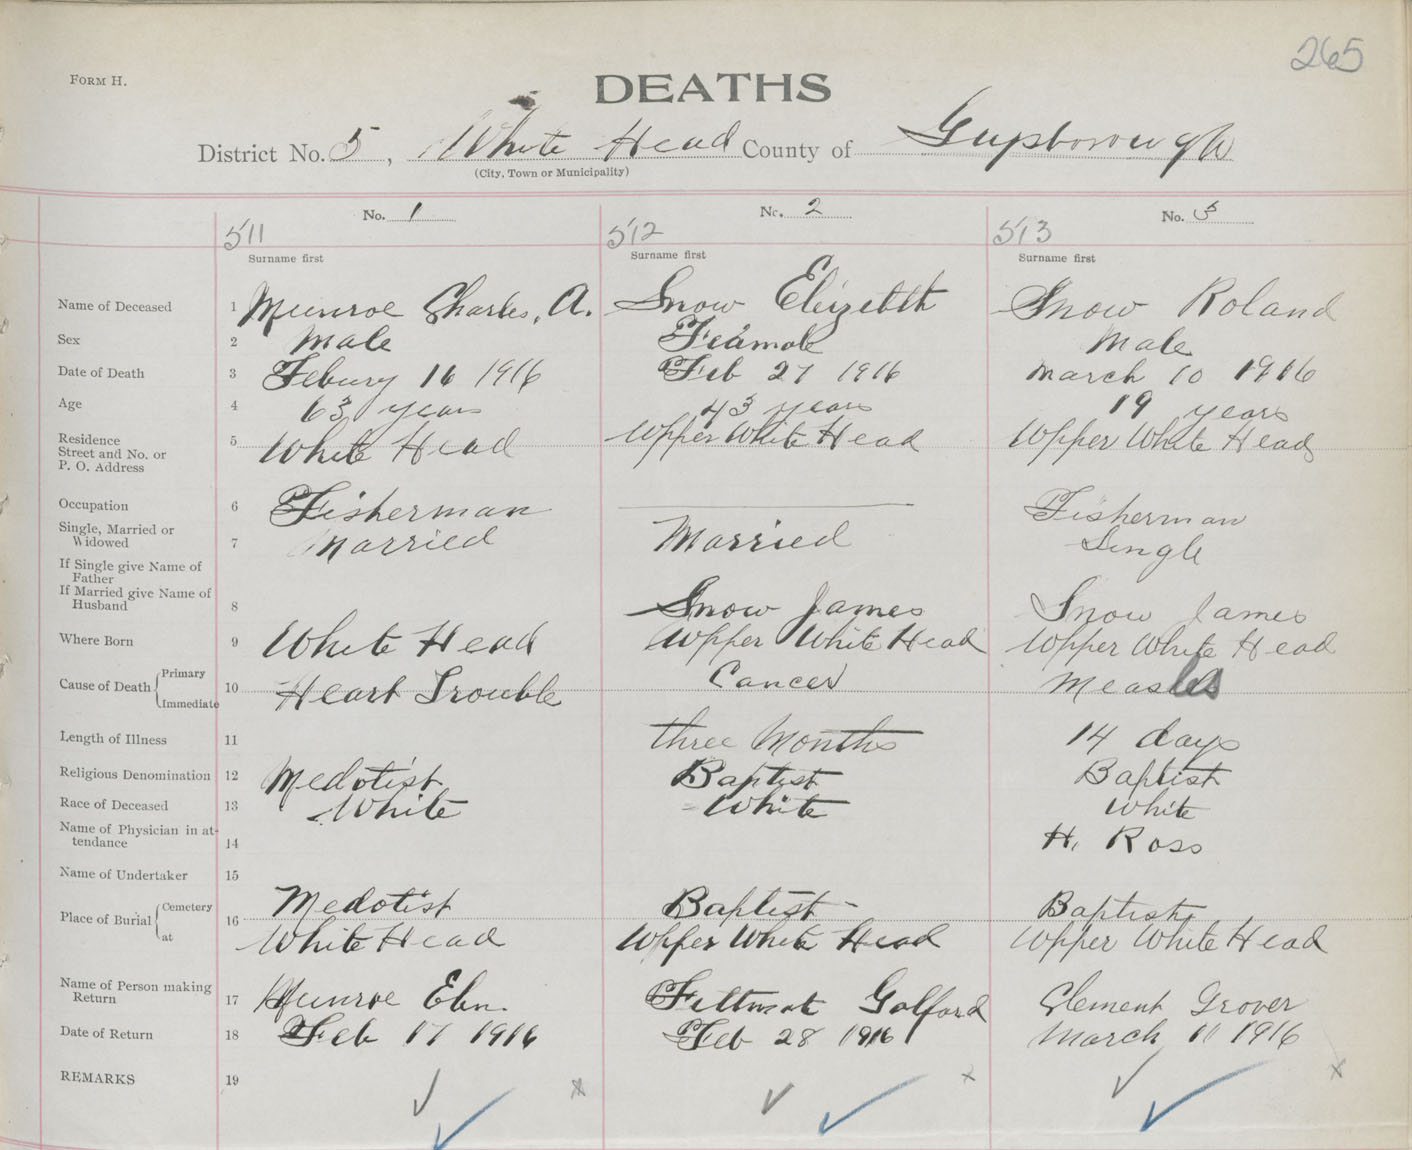 265
FORM H.
DEATHS
District No. 5, White Head County of Guysborough
(City, Town or Municipality)
No. 1 No. 2 No. 3
511 512 513
Surname first Surname first Surname first
Name of Deceased 1 Munroe Charles, A. Snow Elizebth Snow Roland
Sex 2 Male Feamale Male
Date of Death 3 Febury 16 1916 Feb 27 1916 March 10 1916
Age 4 63 years 43 years 19 years
Residence
Street and No. or
P. O. Address 5 White Head Upper White Head Upper White Head
Occupation 6 Fisherman Fisherman
Single, Married or
Widowed 7 Married Married Single
If Single give Name of
Father
If Married give Name of
Husband 8 Snow James Snow James
Where Born 9 White Head Upper White Head Upper White Head
Cause of Death Primary
Immediate 10 Heart Trouble Cancer Measles
Length of Illness 11 three Months 14 days
Religious Denomination 12 Medotist Baptist Baptist
Race of Deceased 13 White White White
Name of Physician in at-
tendance 14 H. Ross
Name of Undertaker 15
Place of Burial Cemetery 16 Medotist Baptist Baptist
at White Head Upper White Head Upper White Head
Name of Person making
Return 17 Munroe Eben. Golford Clement Grover
Date of Return 18 Feb 17 1916 Feb 28 1916 March 11 1916
REMARKS 19